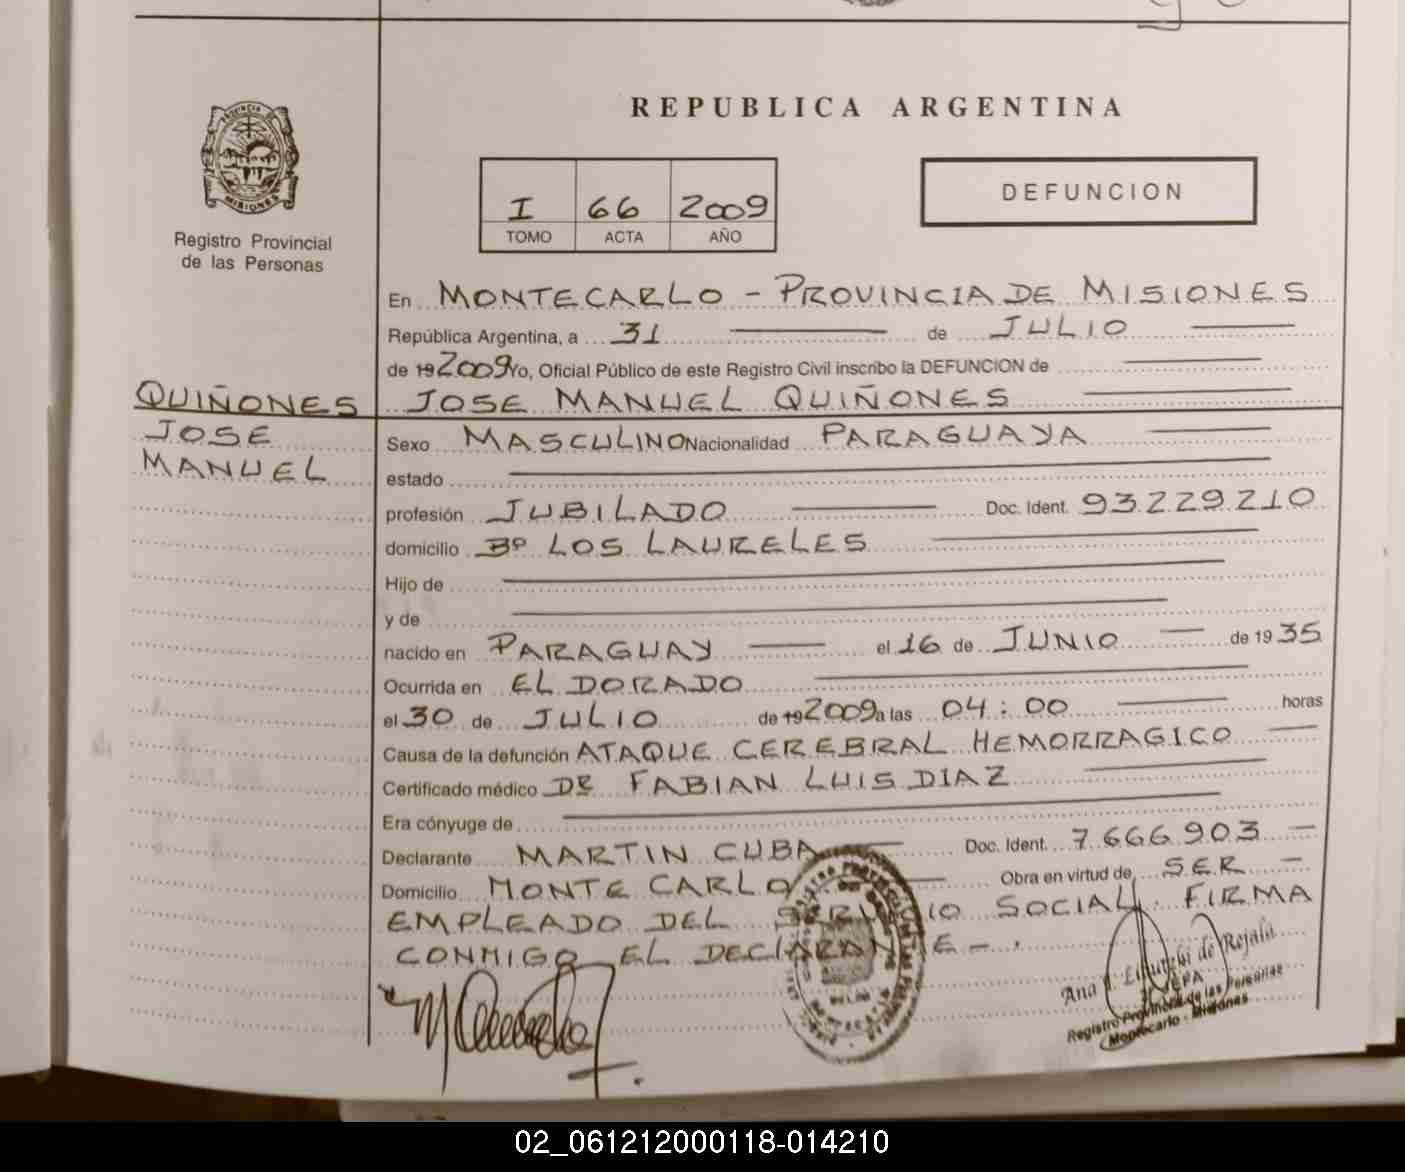 PROVINCIA DE
MISIONES
Registro Provincial
de las Personas
REPUBLICA ARGENTINA
I 66 2009
TOMO ACTA AÑO
DEFUNCION
En MONTECARLO - PROVINCIA DE MISIONES
República Argentina, a 31 de JULIO
de 19 2009 Yo, Oficial Público de este Registro Civil inscribo la DEFUNCION de
QUIÑONES JOSE MANUEL QUIÑONES
JOSE
MANUEL
Sexo MASCULINO Nacionalidad PARAGUAYA
estado
profesión JUBILADO Doc. Ident. 93.229.210
domicilio Bº LOS LAURELES
Hijo de
y de
nacido en PARAGUAY el 16 de JUNIO de 19 35
Ocurrida en ELDORADO
el 30 de JULIO de 19 2009 a las 04:00 horas
Causa de la defunción ATAQUE CEREBRAL HEMORRAGICO
Certificado médico DR FABIAN LUIS DIAZ
Era cónyuge de
Declarante MARTIN CUBA Doc. Ident. 7.666.903
Domicilio MONTE CARLO Obra en virtud de SER
EMPLEADO DEL SERVICIO SOCIAL. FIRMA
CONMIGO EL DECLARANTE - .
Ana de Rojala
JEFA
Registro Provincial de las Personas
Montecarlo - Misiones
02_061212000118-014210